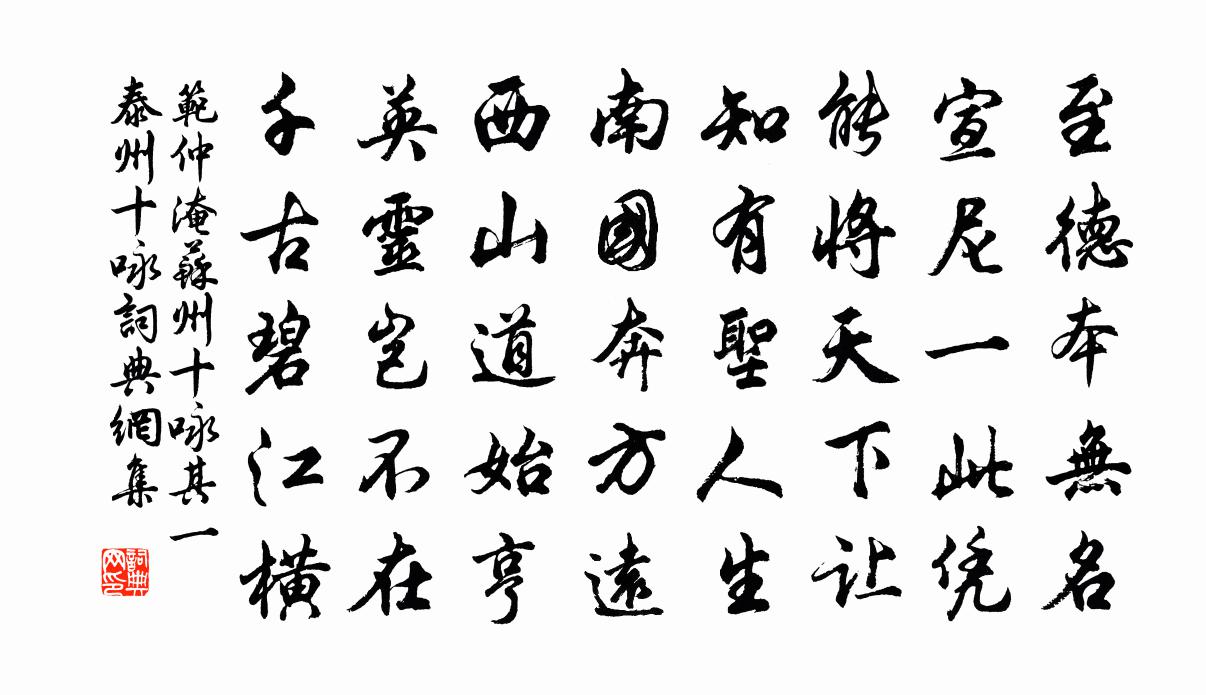 至德本無名
宣尼一此凭
能將天下让
知有聖人生
南國奔方遠
西山道始亨
英靈岂不在
千古碧江橫
範仲淹蘇州十咏其一
泰州十咏詞典網集
詞典网印